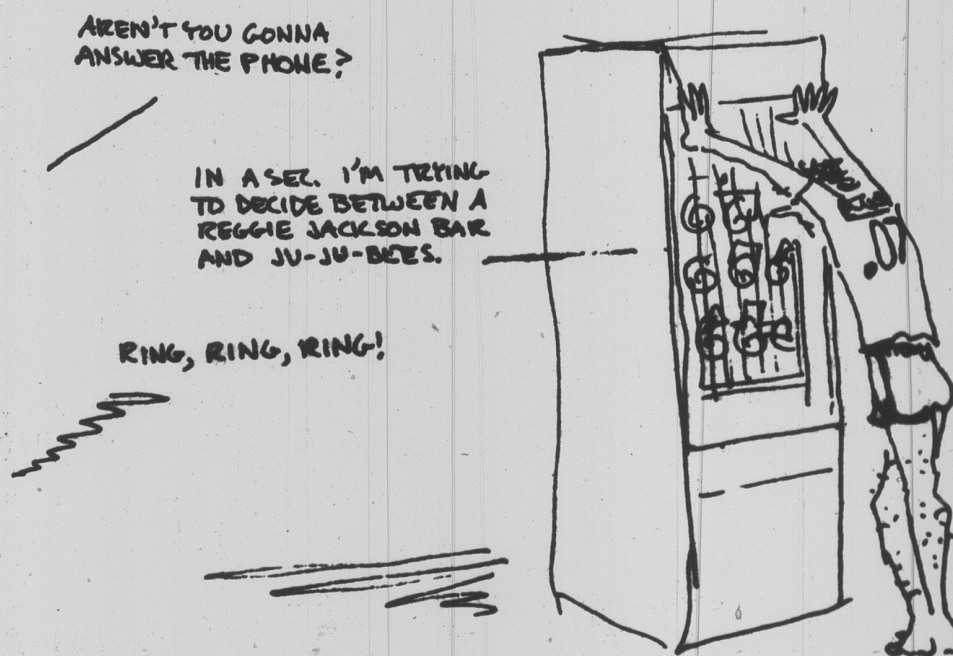 AREN'T YOU GONNA
ANSWER THE PHONE?
IN A SEC. I'M TRYING
TO DECIDE BETWEEN A
REGGIE JACKSON BAR
AND JU-JU-BEES.
RING, RING, RING!